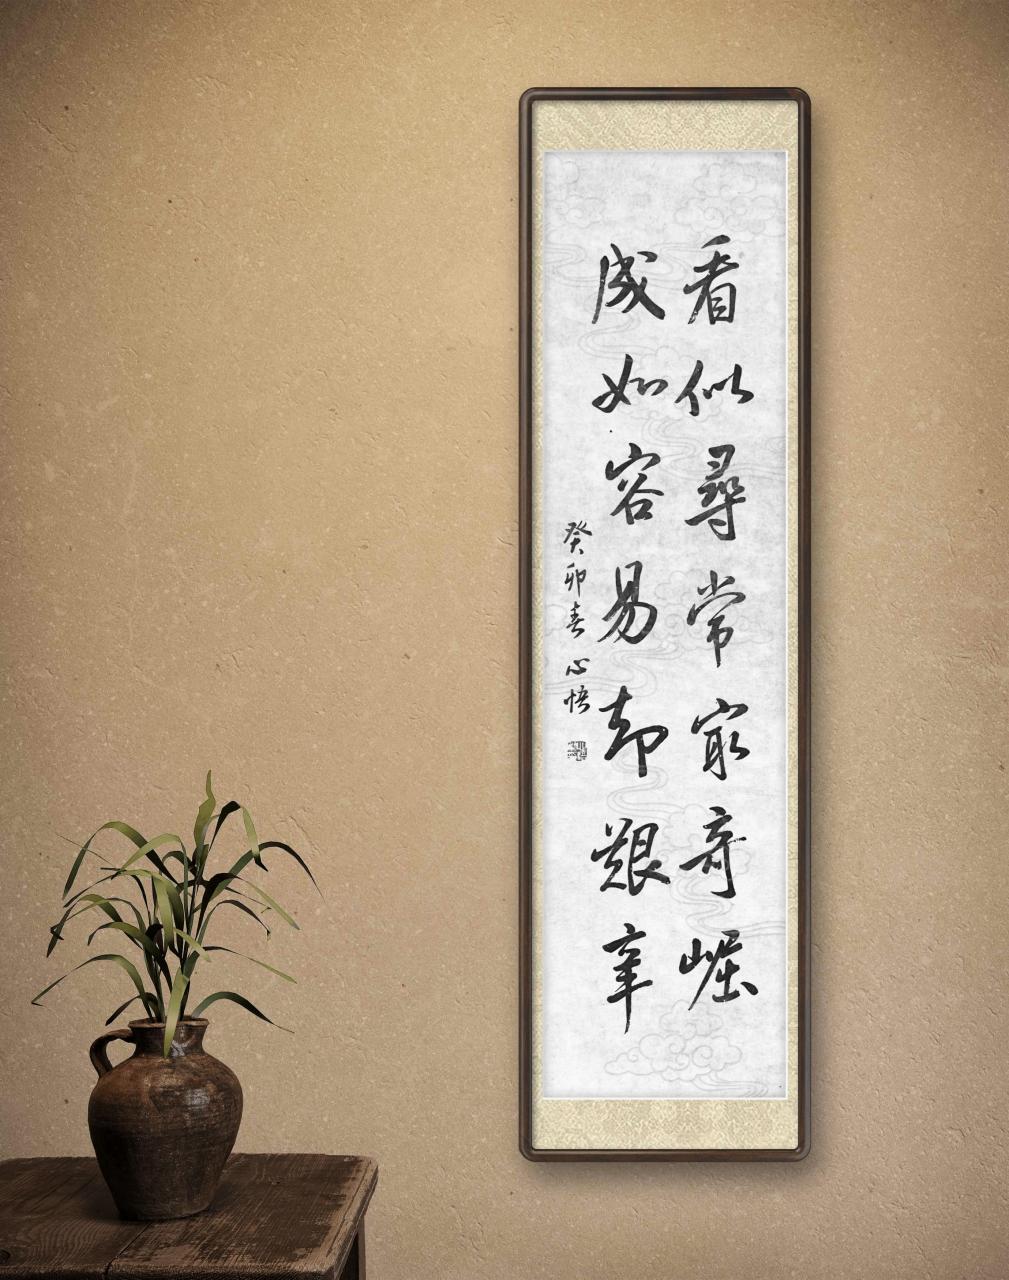 看似尋常最奇崛
成如容易却艱辛
癸卯春心悟